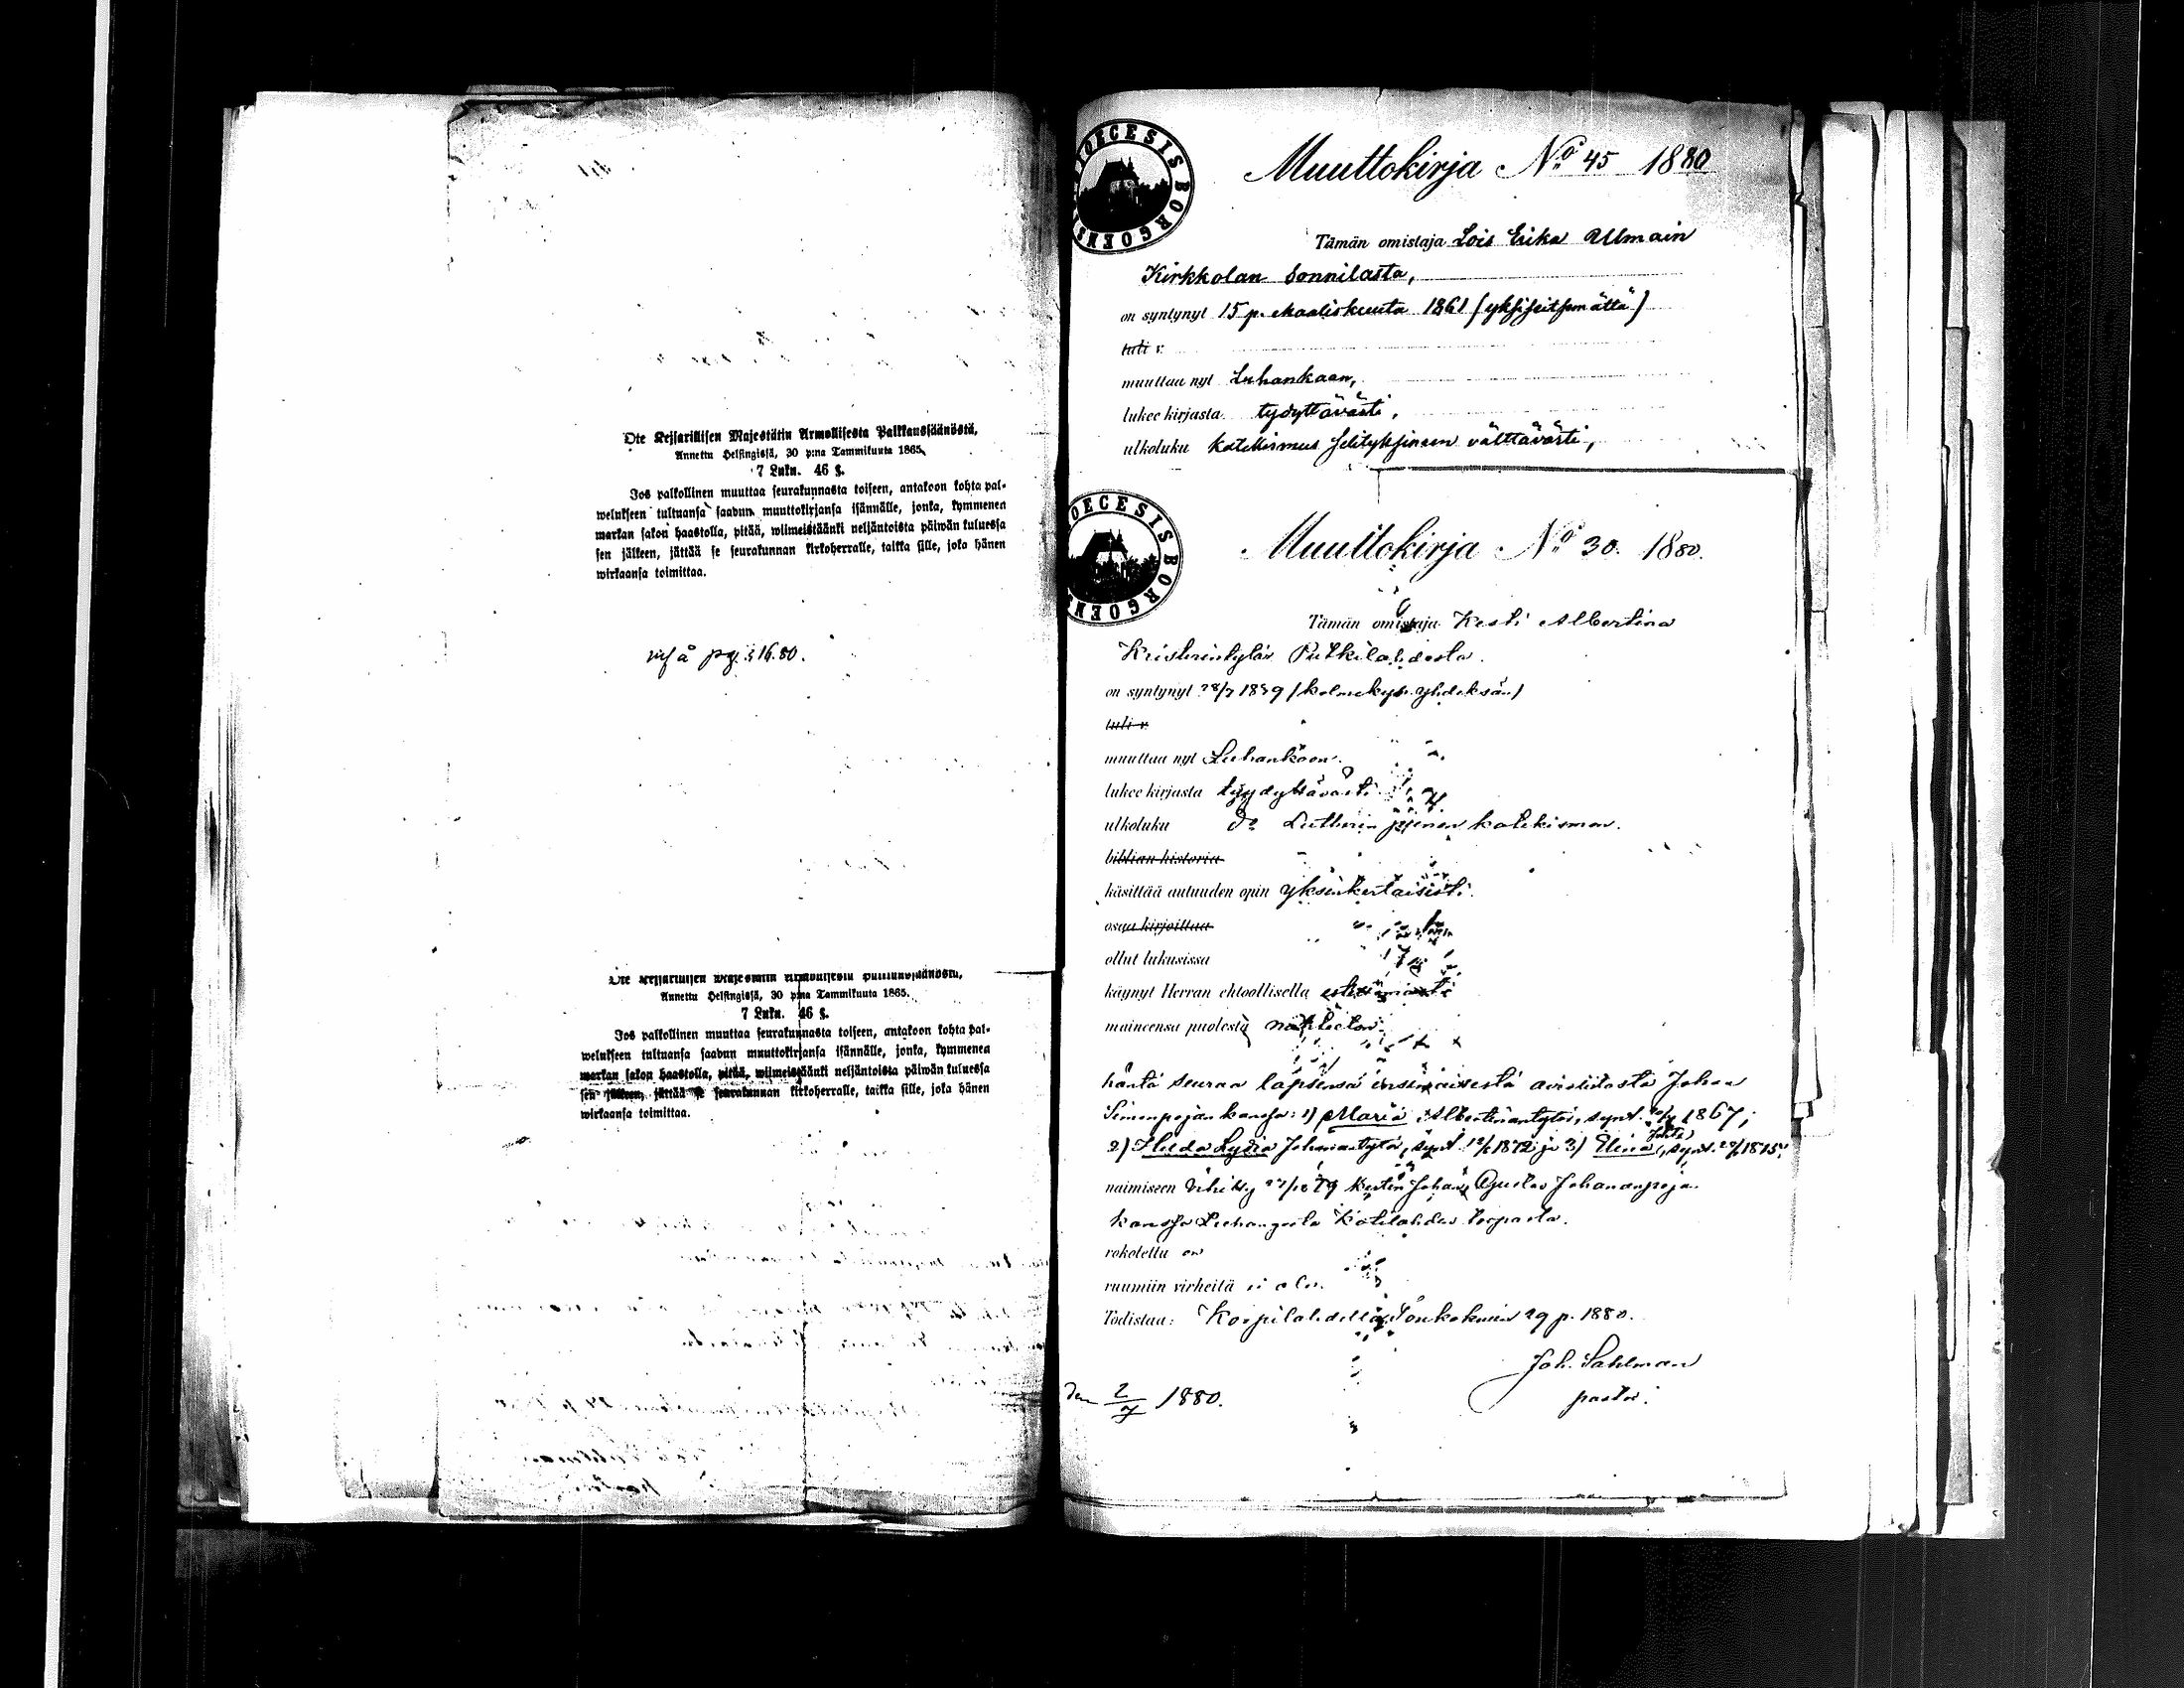 Ote Keisarillisen Majestätin Armollisesta Palkkaussäännöstä,
Annettu Helsingissä, 30 p:nä Tammikuuta 1865.
7 Luku. 46 §.
Jos palkollinen muuttaa seurakunnasta toiseen, antakoon kohta pal-
welukseen tultuansa saadun muuttokirjansa isännälle, jonka, kymmenen
markan sakon haastolla, pitää, wiimeistäänki neljäntoista päiwän kuluessa
sen jälkeen, jättää se seurakunnan kirkoherralle, taikka sille, joka hänen
wirkaansa toimittaa.
Ote Keisarillisen Majestätin Armollisesta Palkkaussäännöstä,
Annettu Helsingissä, 30 p:nä Tammikuuta 1865.
7 Luku. 46 §.
Jos palkollinen muuttaa seurakunnasta toiseen, antakoon kohta pal-
welukseen tultuansa saadun muuttokirjansa isännälle, jonka, kymmenen
markan sakon haastolla, pitää, wiimeistäänki neljäntoista päiwän kuluessa
sen jälkeen, jättää se seurakunnan kirkoherralle, taikka sille, joka hänen
wirkaansa toimittaa.
DIOECESIS BORGOENS
Muuttokirja No 45 1880
Tämän omistaja Lois Erika Ulmain
Kirkkolan Sonnilasta,
on syntynyt 15 p. Maaliskuuta 1861 (yksiseitsemättä)
tuli v.
muuttaa nyt Luhankaan,
lukee kirjasta tydyttävästi,
ulkoluku Katekismus selityksineen välttävästi,
DIOECESIS BORGOENS
Muuttokirja No 30. 1880.
Tämän omistaja Kesti Albertina
Kristerintytär Putkilahdesta.
on syntynyt 28/7 1839 (kolmekym. yhdeksän)
tuli v.
muuttaa nyt Luhankaan.
lukee kirjasta tyydyttävästi
ulkoluku do Lutherin pienen katekismon.
biblian historia
käsittää autuuden opin yksinkertaisesti.
osaa kirjoittaa
ollut lukusissa
käynyt Herran ehtoollisella
maineensa puolesta nuhteeton.
häntä seuraa lapsensa ensimäisestä avioliitosta Johan
Simonpojan kanssa: 1) Maria Albertinantytär, synt. 1867;
2) Hilda Lydia Johanantytär, synt. 1872 ja 3) Elina synt. 1875.
naimiseen vihitty 79 Johan Gustav Johananpojan
kanssa Luhangasta
rokotettu on
ruumiin virheitä ei ole.
Todistaa: Korpilahdella Toukokuun 29 p. 1880.
Joh. Sahlman
pastor.
den 2/7 1880.